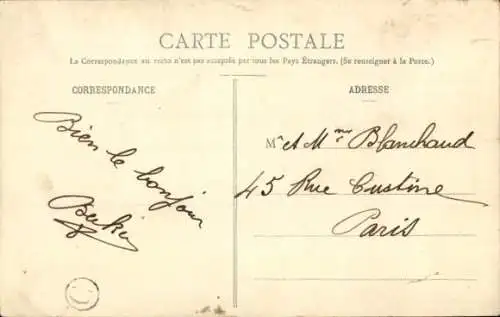 CARTE POSTALE
La Correspondance au recto n'est pas acceptée par tous les Pays Étrangers. (Se renseigner à la Poste.)
CORRESPONDANCE
Bien le bonjour
ADRESSE
M^r et M^me Blanchaud
45 Rue Custine
Paris